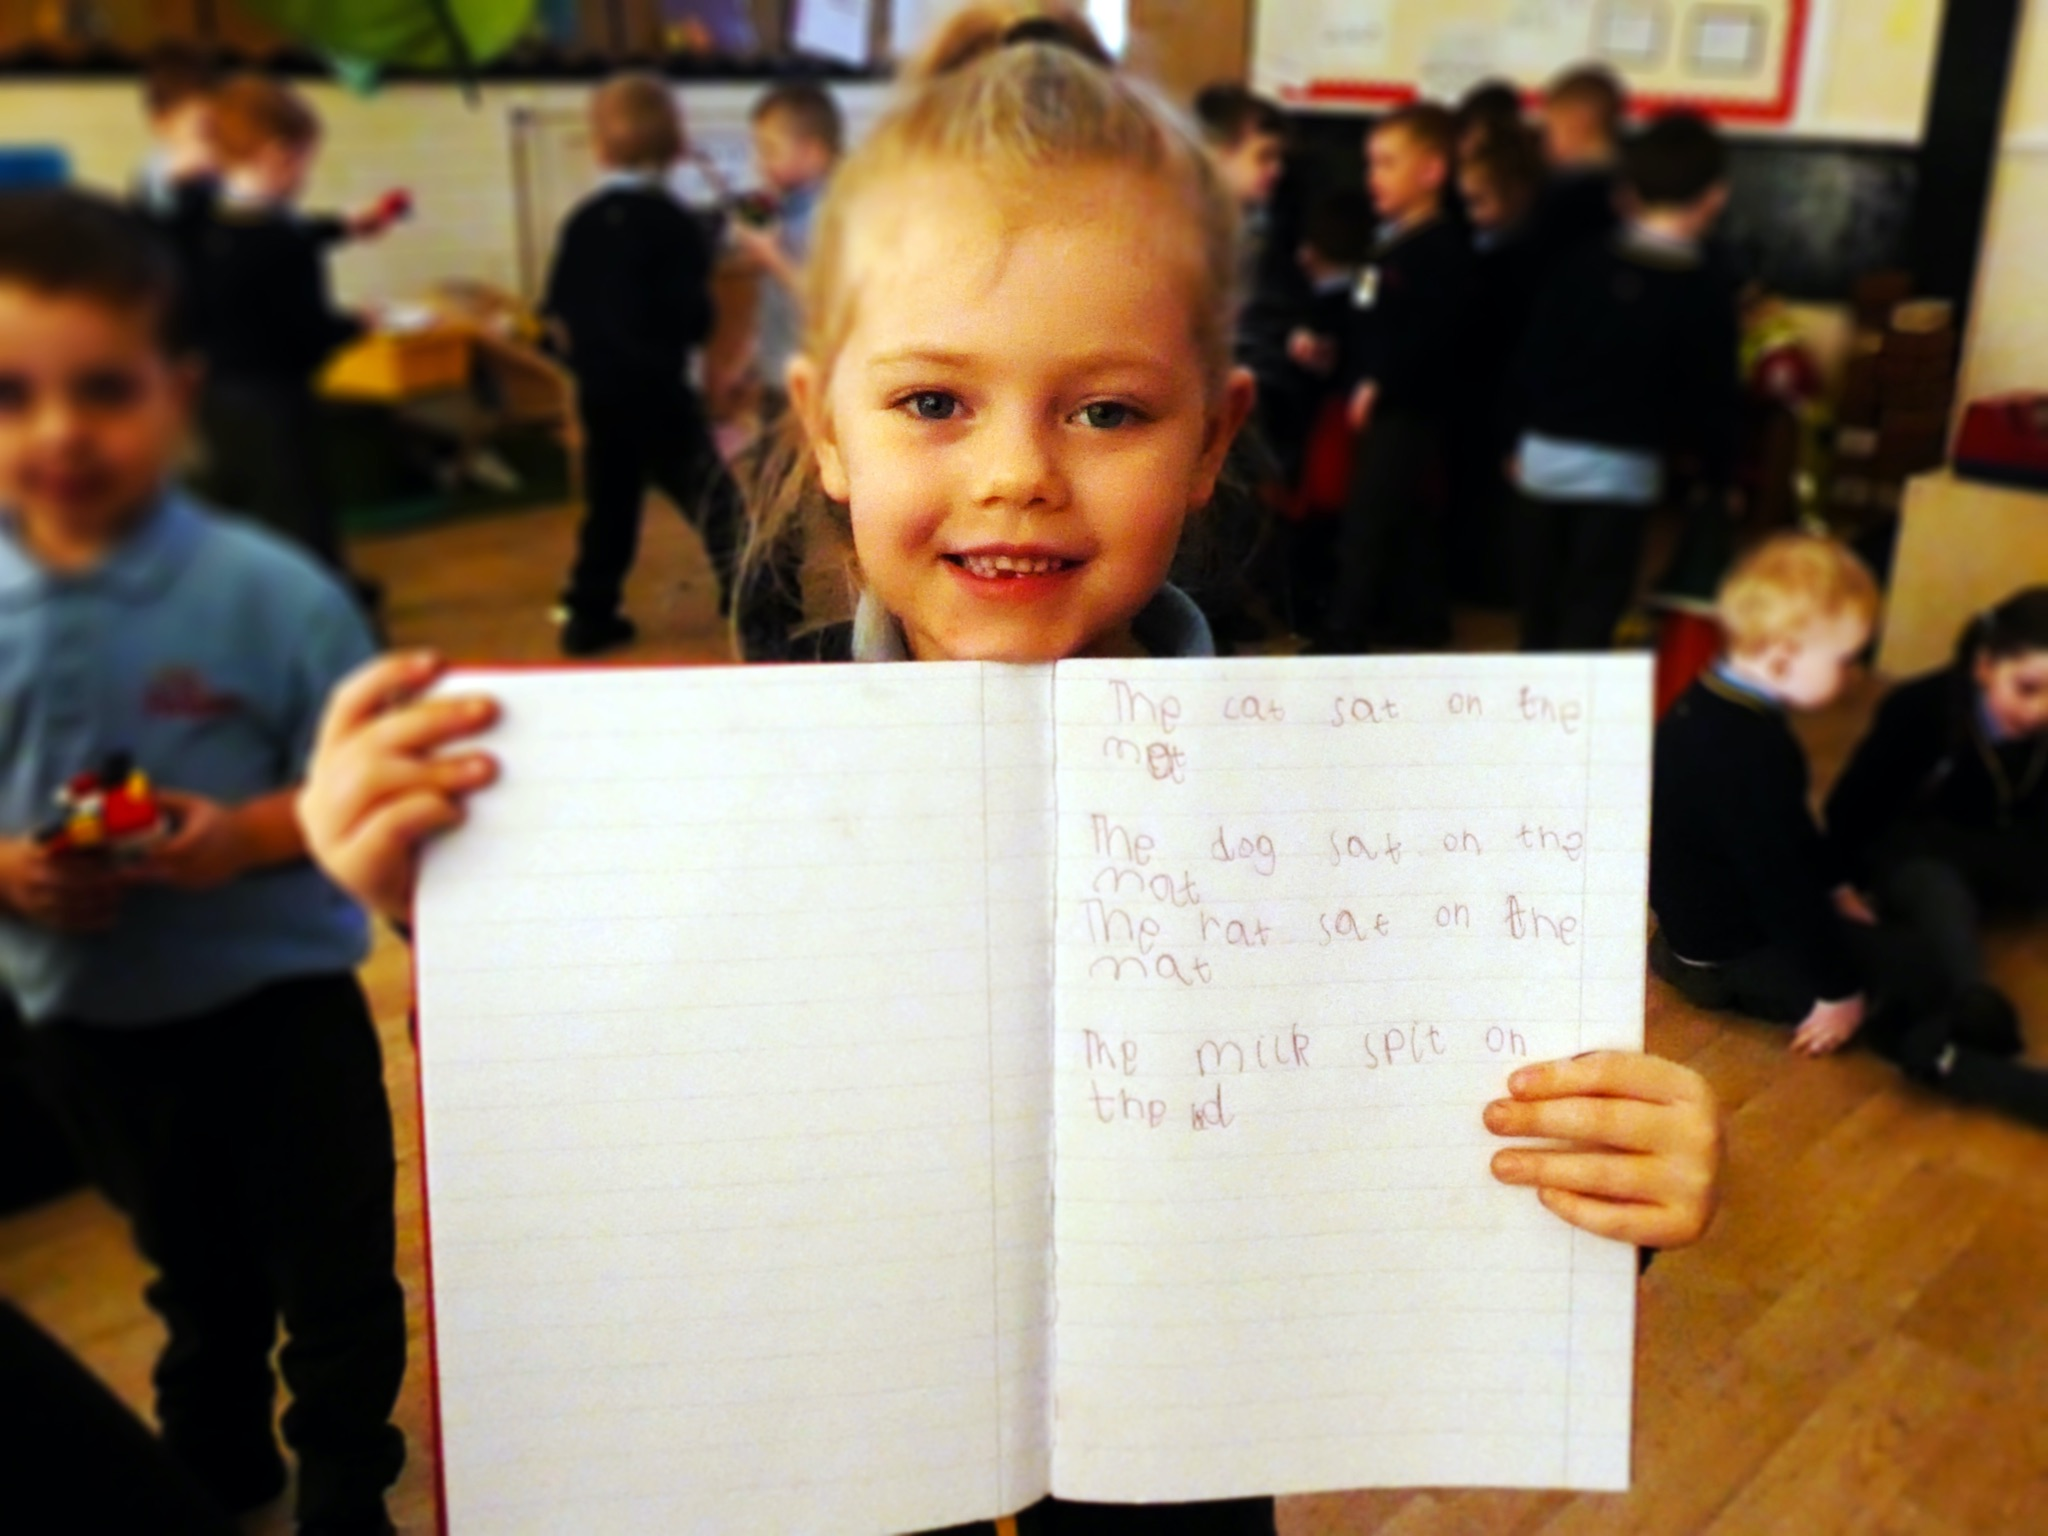 The cat sat on the
mat
The dog sat on the
mat
The rat sat on the
mat
The milk spit on
the